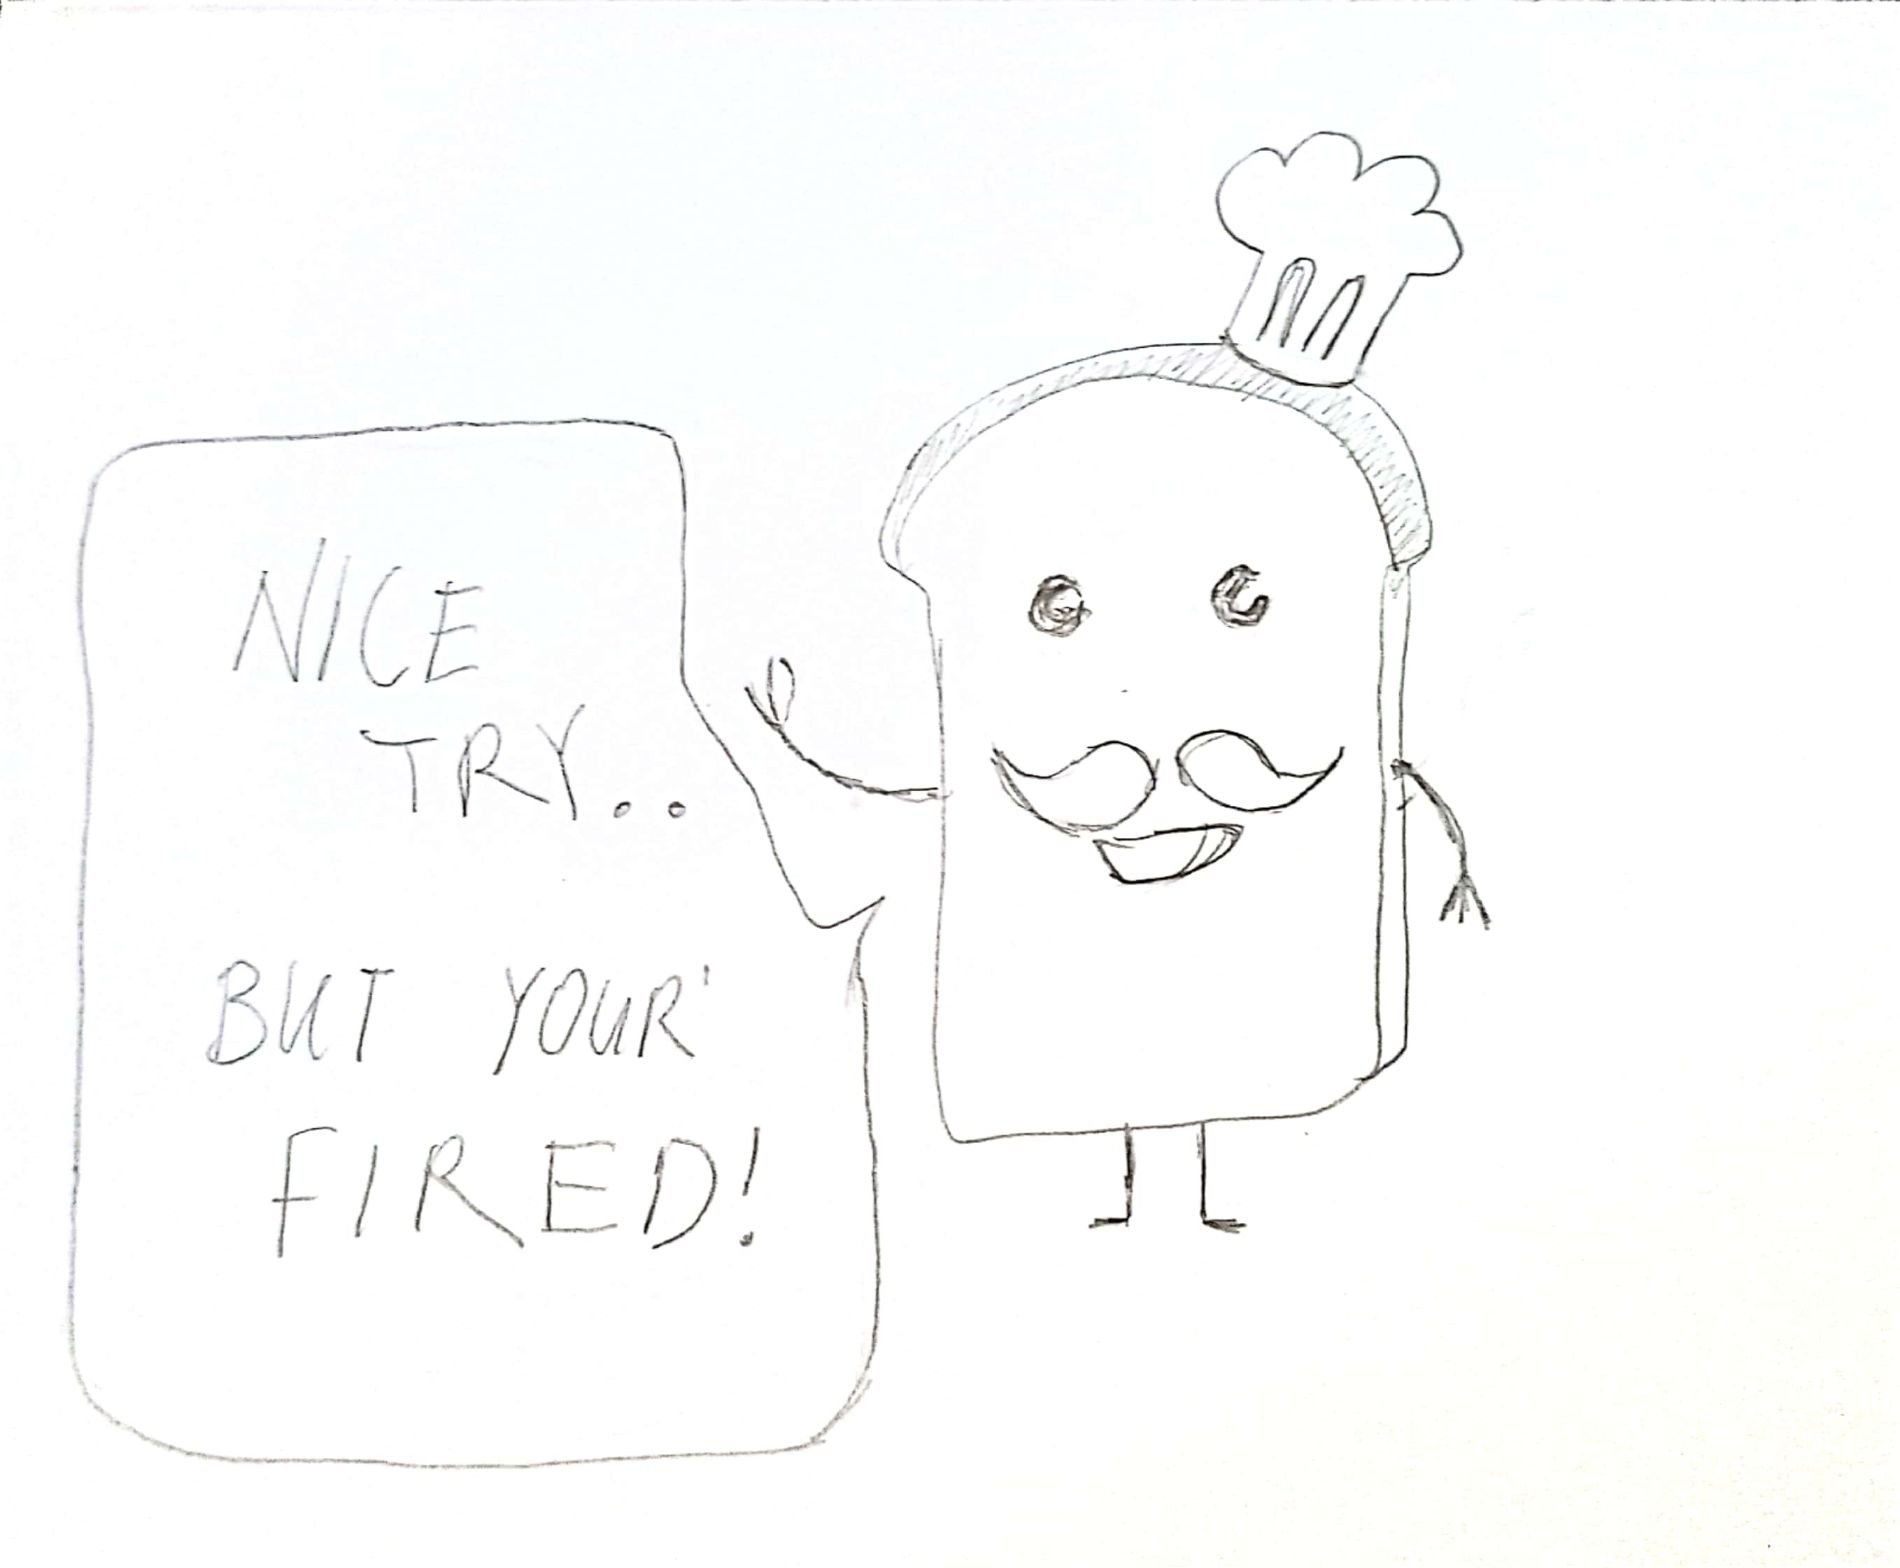 NICE
TRY..
BUT YOUR'
FIRED!